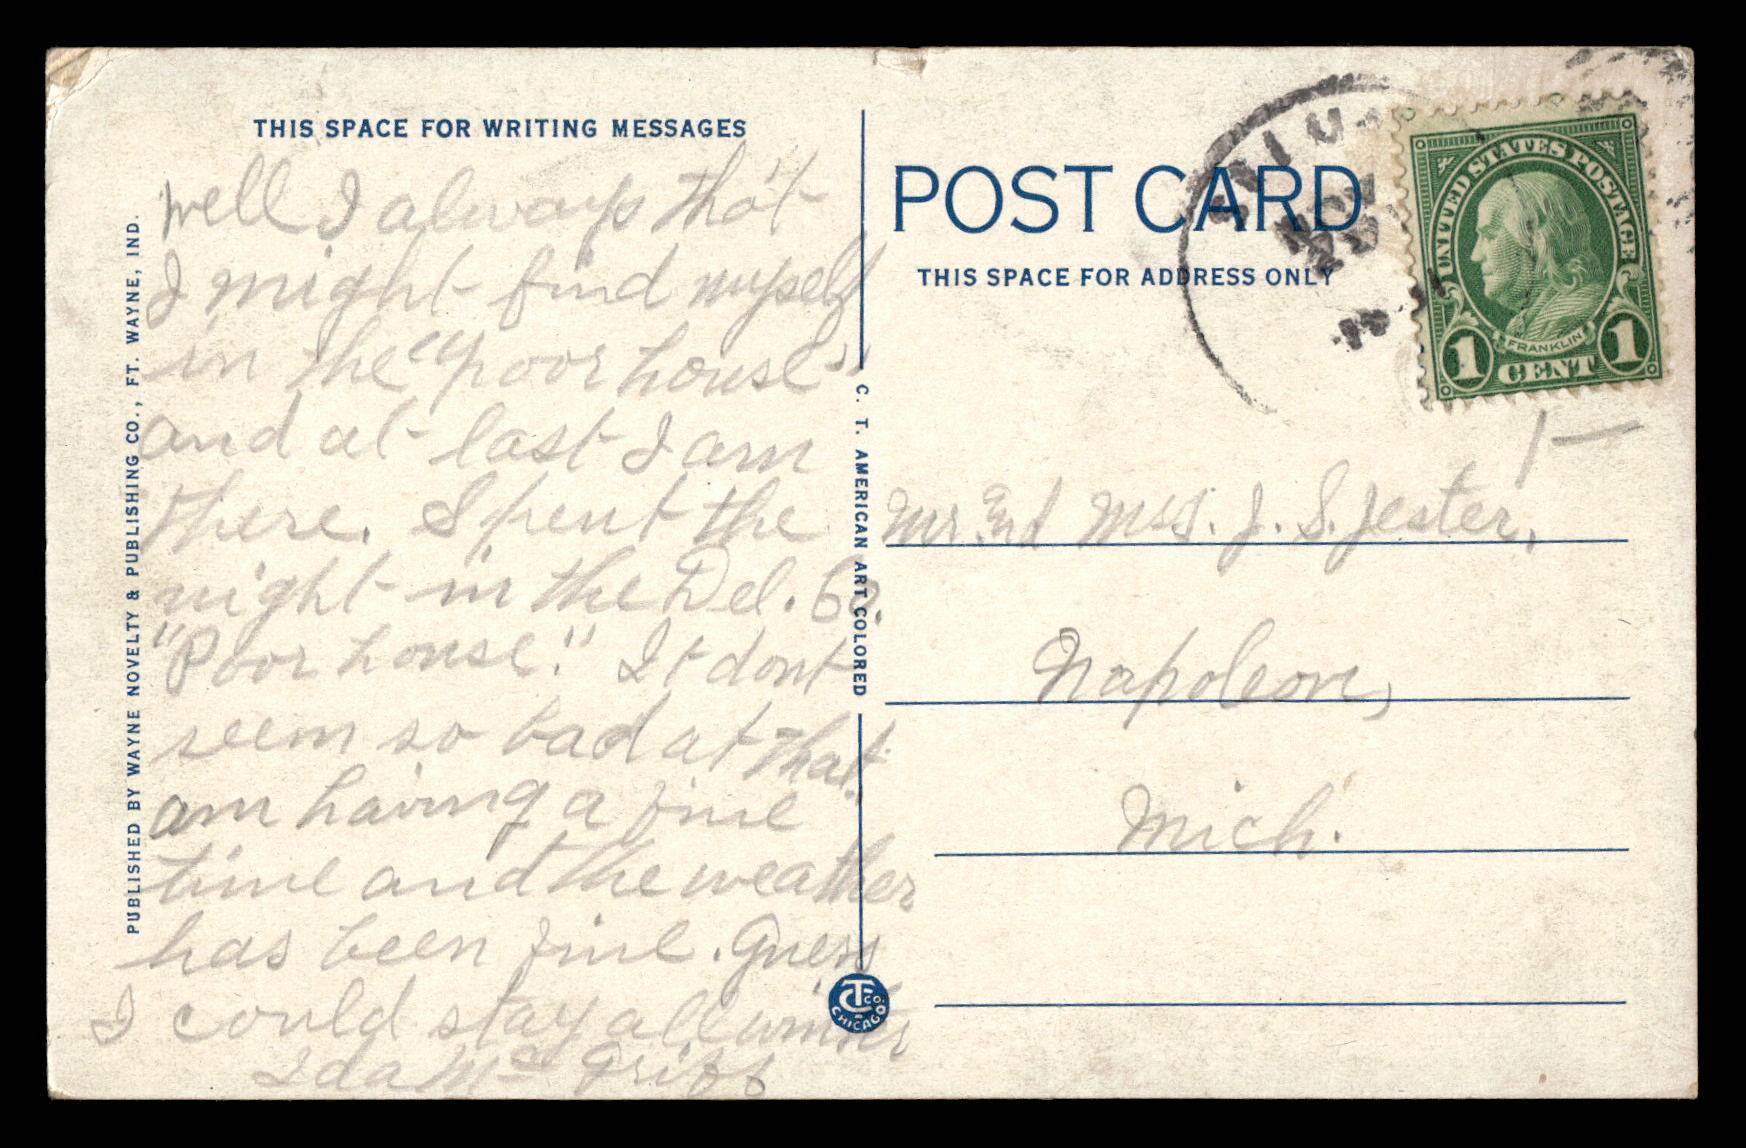 THIS SPACE FOR WRITING MESSAGES
Well I always thot
I might find myself
in the "poor house"
and at last I am
there. Spent the
night in the Del. Co.
"Poor house." It dont
seem so bad at that.
am having a fine
time and the weather
has been fine. Guess
I could stay all winter
Ida Mc Griff
PUBLISHED BY WAYNE NOVELTY & PUBLISHING CO., FT. WAYNE, IND.
C. T. AMERICAN ART COLORED
C T CO. CHICAGO
POST CARD
THIS SPACE FOR ADDRESS ONLY
NOV
UNITED STATES POSTAGE
FRANKLIN
1 CENT 1
1—
Mr. and Mrs. J. S. Jester,
Napoleon,
Mich.